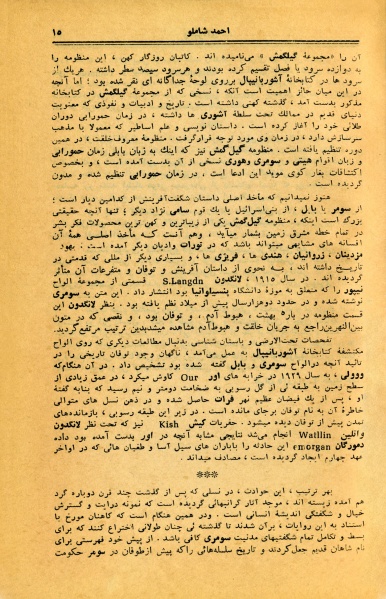 احمد شاملو
۱۵
آن را «مجموعهٔ گیلگمش» می‌نامیده اند. کاتبان روزگار کهن، این منظومه را
به دوازده سرود یا فصل تقسیم کرده بودند و هرسرود سیصد سطر داشته. هریك از
سرود ها در کتابخانهٔ آشوربانیپال برروی لوحهٔ جداگانه ای نقر شده بود؛ اما آنچه
در این میان حائز اهمیت است آنکه، نسخه‌ی که از مجموعهٔ گیلگمش در کتابخانه
مذکور بدست آمد، گذشته کهنی داشته است. تاریخ و ادبیات و نفوذی که معنویت
دنیای قدیم در ممالك تحت سلطهٔ آشوری ها داشته، در زمان حمورابی دوران
طلائی خود را آغاز کرده است. داستان نویسی و علم اساطیر که معمولا با مذهب
سرسازش دارد، در زمان وی مورد توجه قرارگرفت. منظومهٔ معروف خلقت، در همین
دوره تنظیم یافته است. منظومه گیل‌گمش نیز که اینك به زبان بابلی زمان حمورابی
و زبان اقوام هیتی و سومری وهوری نسخی از آن بدست آمده است، و بخصوص
اکتشافات بغاز کوی موید این ادعا است، در زمان حمورابی تنظیم شده و مدون
گردیده است.
هنوز نمیدانیم که مأخذ اصلی داستان شگفت‌آفرینش از کدامین دیار است؛
از سومر یا بابل، از بنی‌اسرائیل یا یك قوم سامی نژاد دیگر؛ تنها آنچه حقیقتی
بزرگ است، اینکه، منظومه گیل‌گمش یکی از زیباترین و کهن ترین محصولات فکر بشر
در تمام خطه مشرق زمین بشمار میآید، وهم آنست که مأخذ اساسی همهٔ آن
افسانه های مشابهی میتواند باشد که در تورات وادیان دیگر آمده است. یهود
مزدیسنان، زروانیان، هندی ها، فریزی ها، و بسیاری دیگر از مللی که قدمتی در
تاریخ داشته اند، به نحوی از داستان آفرینش و توفان و متفرعات آن متأثر
گردیده اند. در سال ۱۹۱۵، لانگدون S.Langdn قسمتی از مجموعهٔ الواح
نیپور را که متعلق به موزهٔ دانشگاه پنسیلوانیا بود انتشار داد. این متن به سومری
نوشته شده و در حدود دوهزارسال پیش از میلاد نظم یافته بود. بنظر لانگدون این
قسمت منظومه در باره بهشت، هبوط آدم، و توفان بود، و نقصی که در متون
بین‌النهرین راجع به جریان خلقت و هبوط آدم مشاهده میشدبدین ترتیب مرتفع گردید.
تفحصات تحت‌الارضی و باستان شناسی بدنبال مطالعات دیگری که روی الواح
مکتشفهٔ کتابخانهٔ آشوربانیپال به عمل می‌آمد، ناگهان وجود توفان تاریخی را در
تائید آنچه درالواح سومری و بابلی گفته شده بود تشخیص داد. در آن هنگام که
وولی، به سال ۱۹۲۹ در خرابه های اور Our کاوش میکرد، در عمق زیادی از
سطح زمین به طبقه ئی از گل رسوبی به ضخامت دومتر و نیم رسید که بنابه گفتهٔ
او، پس از یك فیضان عظیم نهر فرات حاصل شده و در ذهن نسل های متوالی
خاطرهٔ آن به نام توفان برجای مانده است. در زیر این طبقه رسوبی، بازمانده‌های
تمدن پیش از توفان دیده میشود. حفریات کیش Kish نیز که تحت نظر لانگدون
واتلین Watllin انجام می‌شد نتایجی مشابه آنچه در اور بدست آمده بود داده
دمورگان emorgan این حادثه را بابارآن های سیل آسا و طغیان هائی که در اواخر
عهد چهارم ایجاد گردیده است، مصادف میداند.
***
بهر ترتیب، این حوادث، در نسلی که پس از گذشت چند قرن دوباره گرد
هم آمده زیسته اند، موجد آثار گرانبهائی گردیده است که نمونه درایت و گسترش
خیال و شگفتگی اندیشهٔ انسانی است. ودر همین هنگام است که کاهنان مورخ با
استناد به این روایات، برآن شدند تا گذشته ئی چنان طولانی اختراع کنند که برای
بسط و تکامل تمام شگفتیهای مدنیت سومری کافی باشد. از پیش خود فهرستی برای
نام شاهان قدیم جعل‌کردند و تاریخ سلسله‌هائی راکه پیش ازطوفان در سومر حکومت